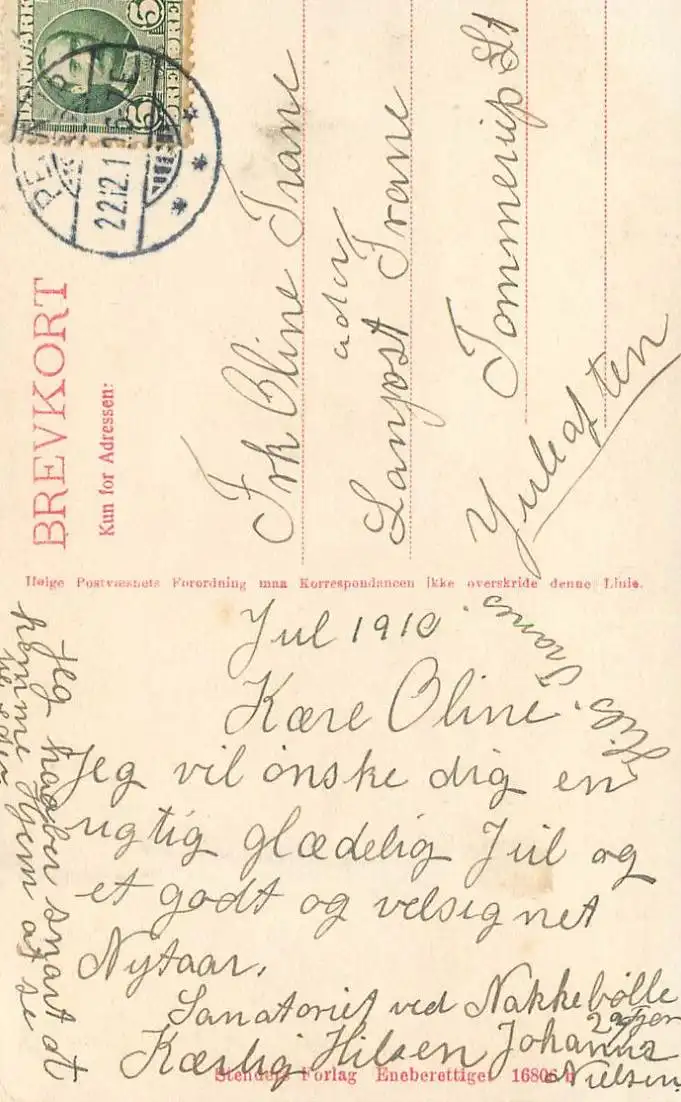 DANMARK
5 5
22.12.1
BREVKORT
Kun for Adressen:
Frk Oline Trane
adr
Lanpost Trane
Tommerup St
Juleaften
Ifølge Postvæsnets Forordning maa Korrespondancen ikke overskride denne Linie.
Jul 1910
Hils Tranes.
Kære Oline.
Jeg vil ønske dig en
rigtig glædelig Jul og
et godt og velsignet
Nytaar.
Sanatoriet ved Nakkebølle
Kærlig Hilsen Johanne
Nielsen
Jeg haaber snart at
komme hjem at se
Stenders Forlag Eneberettiget 16806